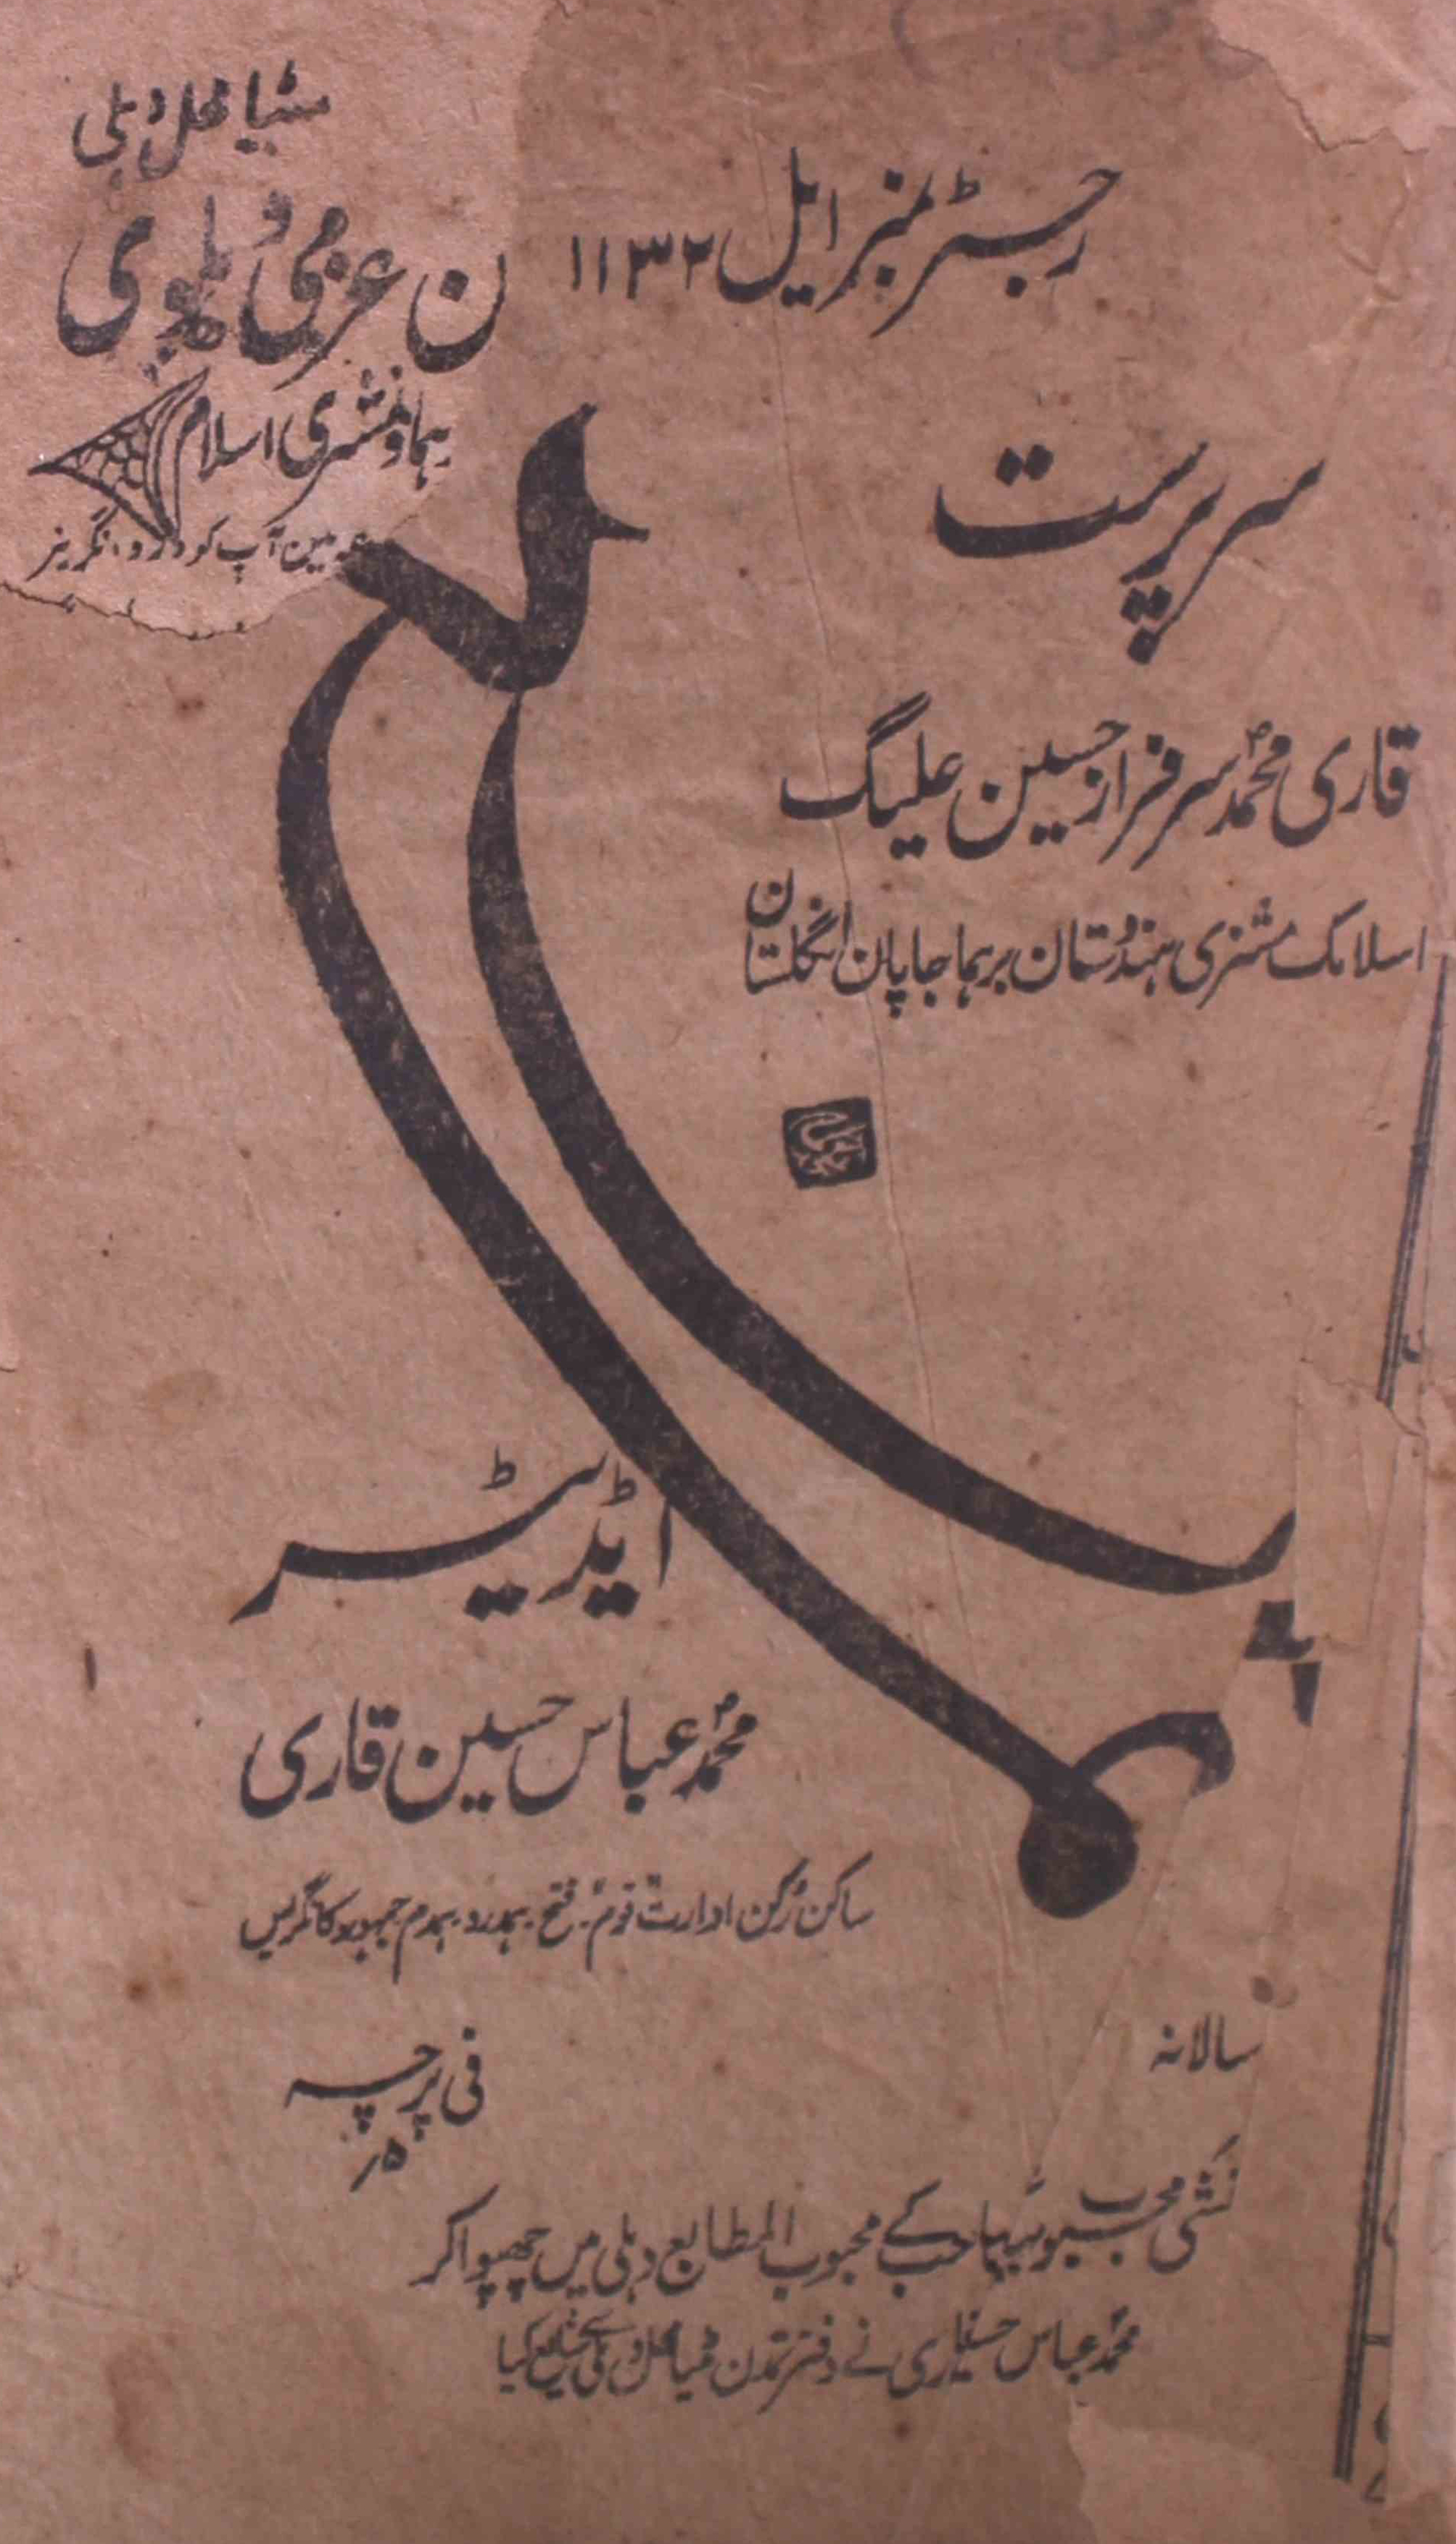 مٹیا محل دہلی
رجسٹر نمبر ایل ۱۱۳۲
ن عزمی دہلوی
برہما و مشنری اسلام
میں آپ کو
سرپرست
قاری محمد سرفراز حسین علیگ
اسلامک مشنری ہندوستان برہما جاپان انگلستان
ایڈیٹر
محمد عباس حسین قاری
ساکن رکن ادارت قوم. فتح. ہمدرد. ہمدم جمہور کانگریس
سالانہ
فی پرچہ
۵ر
منشی محبوب صاحب کے محبوب المطابع دہلی میں چھپوا کر
محمد عباس حسین قاری نے دفتر تمدن مٹیا محل دہلی سے شایع کیا